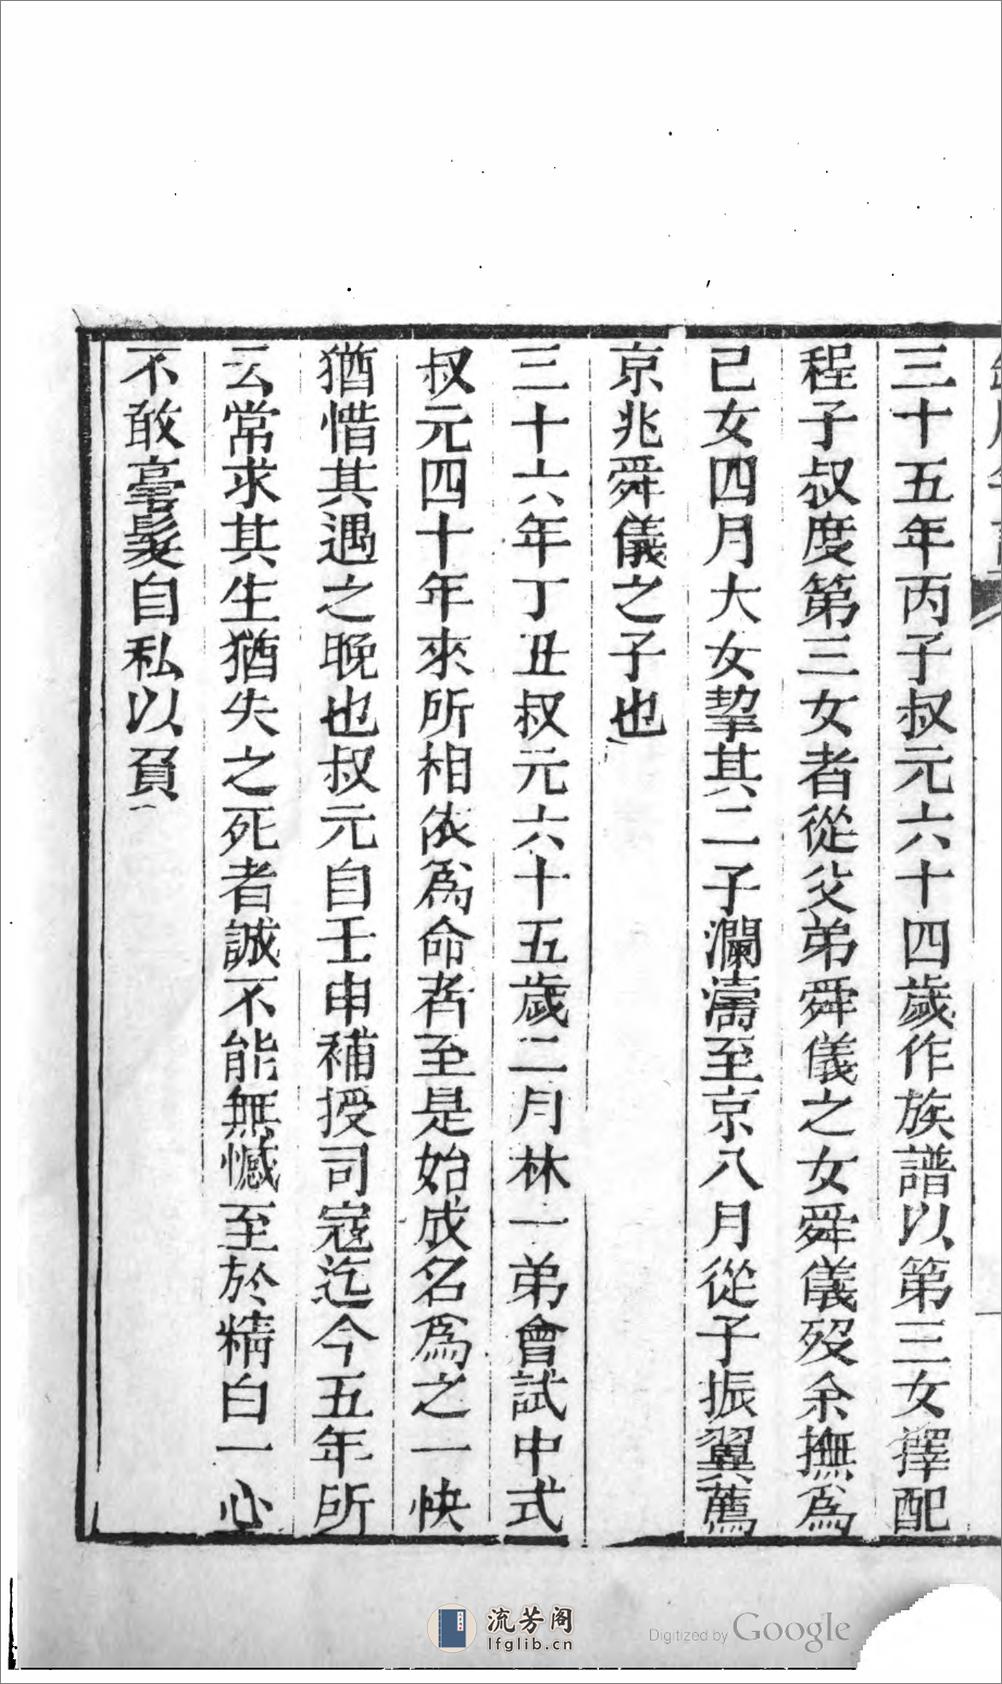 三十五年丙子叔元六十四歲作族譜以第三女擇配
程子叔度第三女者從父弟舜儀之女舜儀歿余撫爲
己女四月大女挈其二子瀾濤至京八月從子振翼薦
京兆舜儀之子也
三十六年丁丑叔元六十五歲二月林一弟會試中式
叔元四十年來所相依爲命者至是始成名爲之一快
猶惜其遇之晚也叔元自壬申補授司寇迄今五年所
云常求其生猶失之死者誠不能無憾至於精白一心
不敢毫髮自私以負
流芳阁
lfglib.cn
Digitized by Google